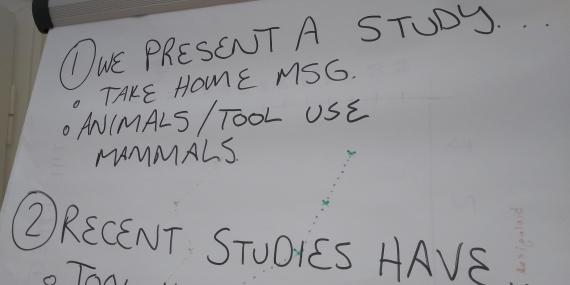 ① WE PRESENT A STUDY...
• TAKE HOME MSG.
• ANIMALS/TOOL USE
MAMMALS
② RECENT STUDIES HAVE